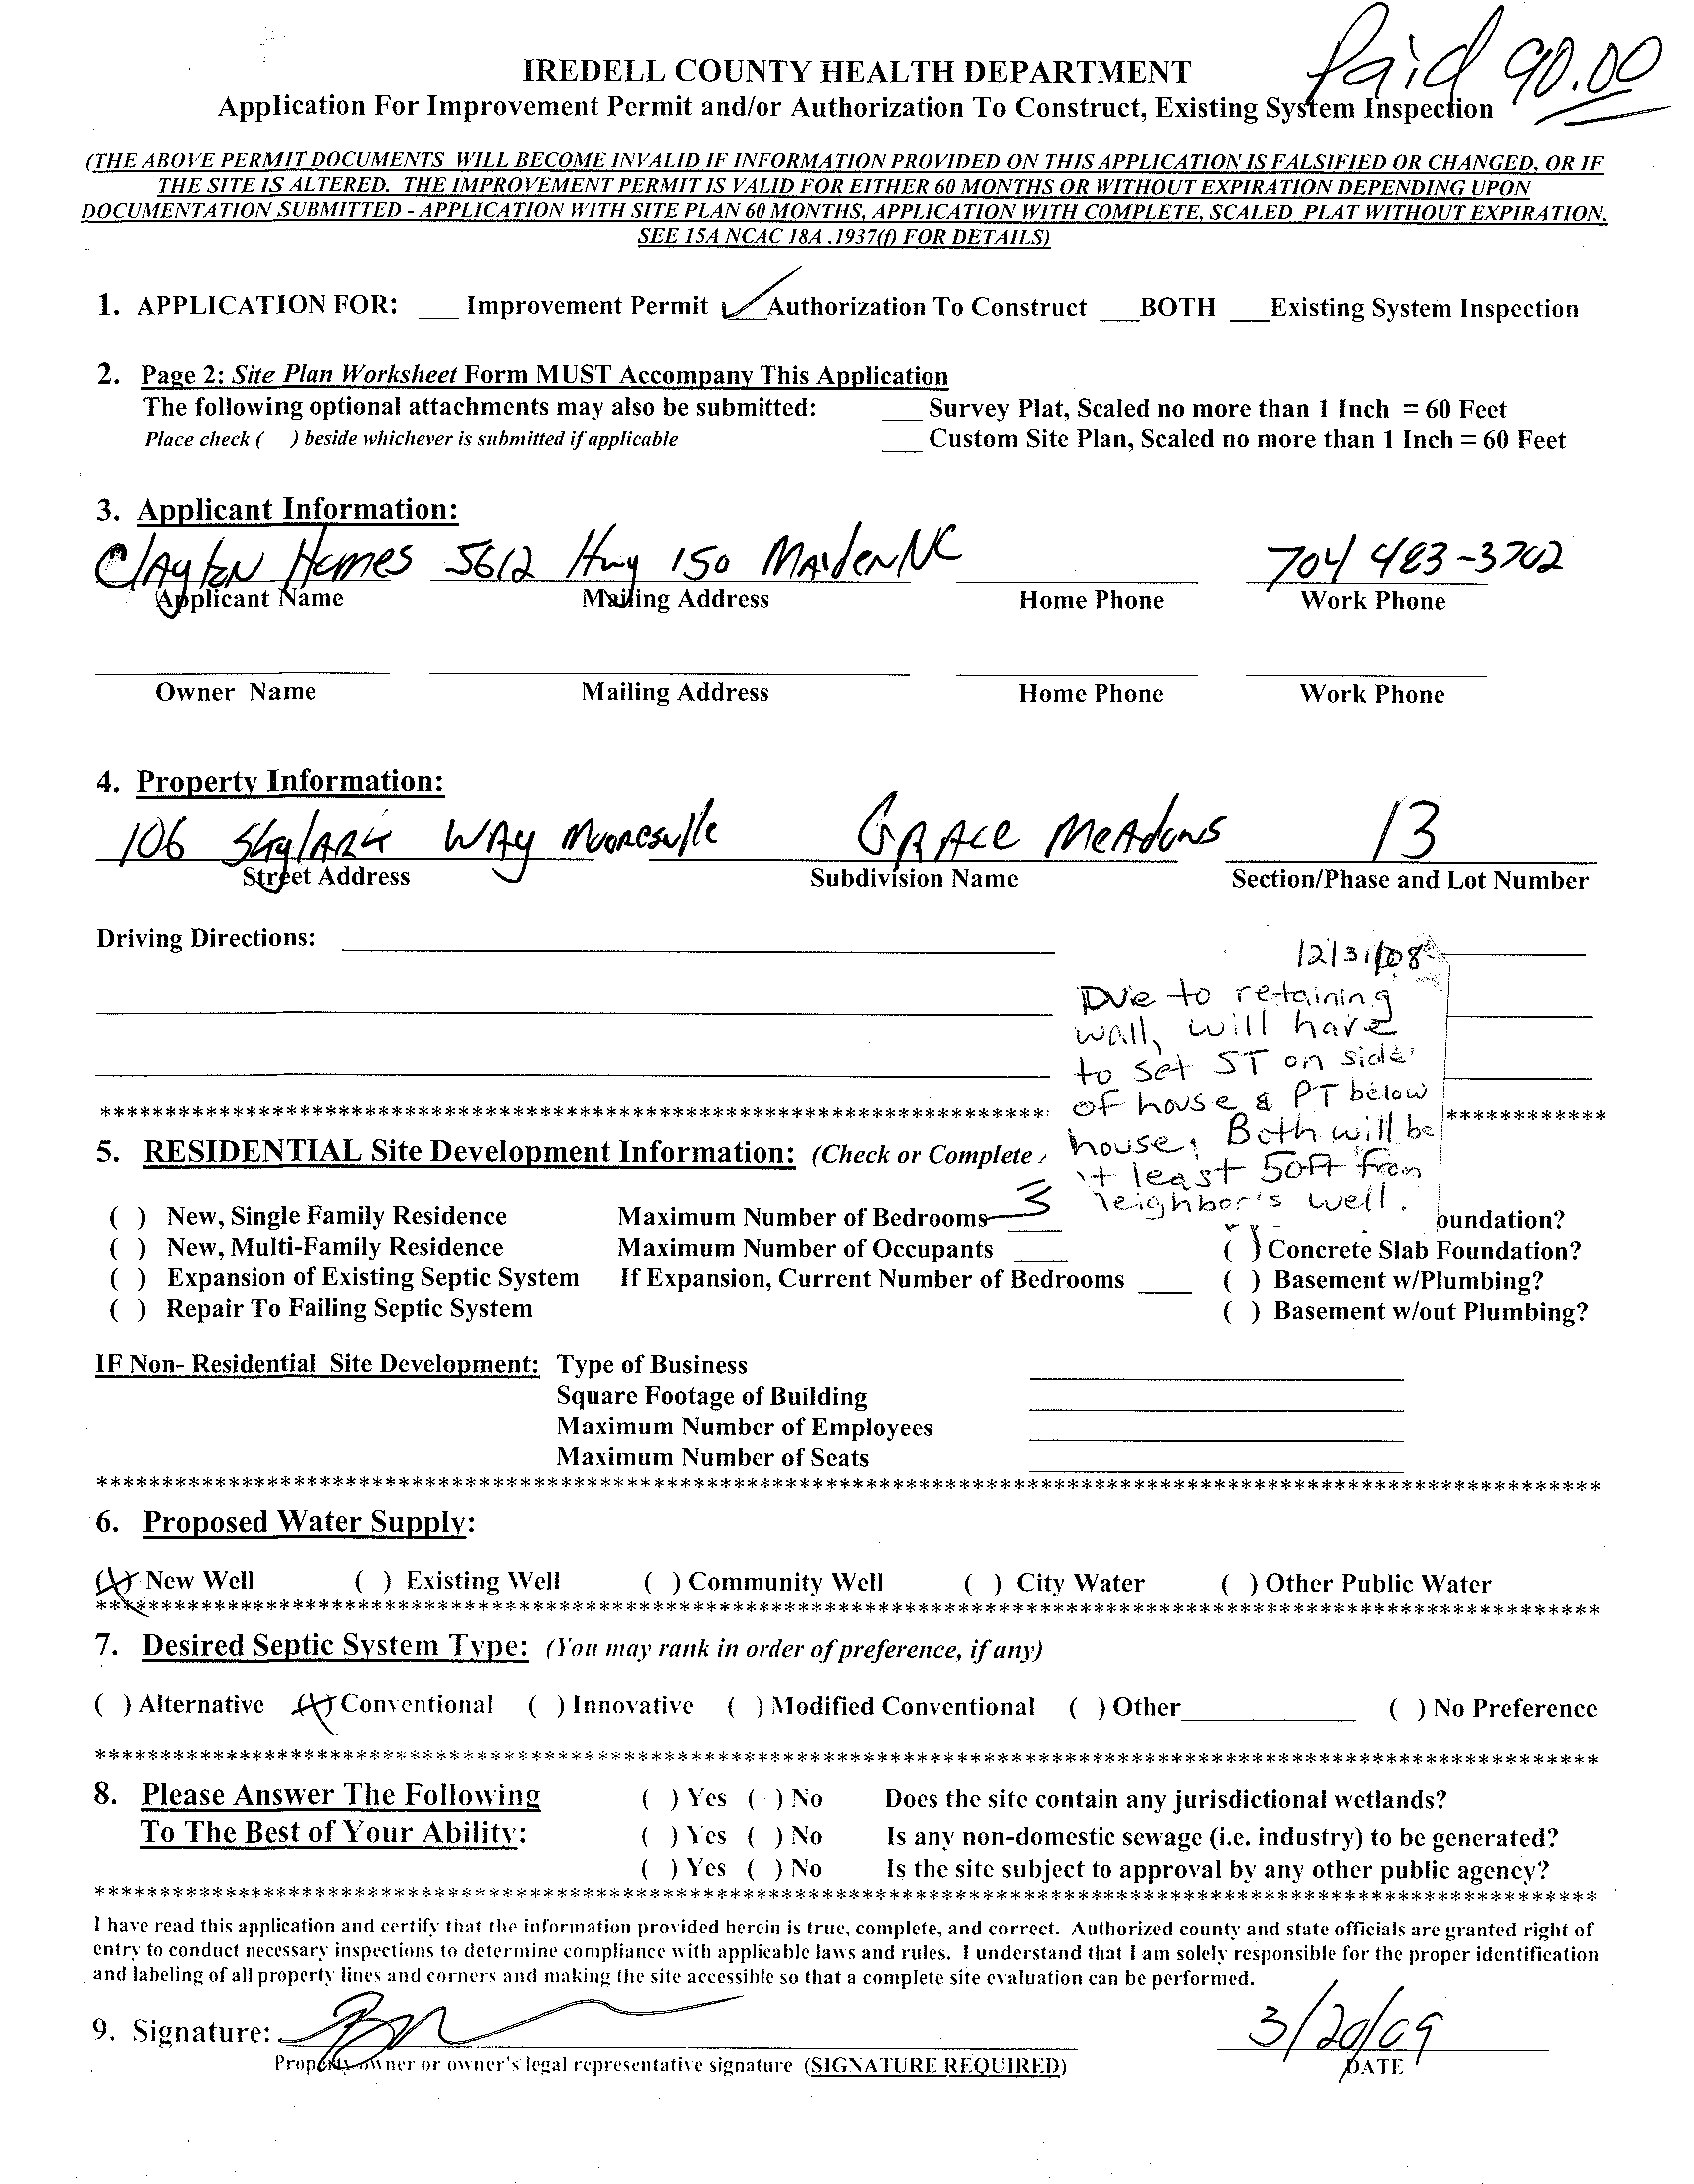 Paid 90.00
IREDELL COUNTY HEALTH DEPARTMENT
Application For Improvement Permit and/or Authorization To Construct, Existing System Inspection
(THE ABOVE PERMIT DOCUMENTS WILL BECOME INVALID IF INFORMATION PROVIDED ON THIS APPLICATION IS FALSIFIED OR CHANGED, OR IF
THE SITE IS ALTERED. THE IMPROVEMENT PERMIT IS VALID FOR EITHER 60 MONTHS OR WITHOUT EXPIRATION DEPENDING UPON
DOCUMENTATION SUBMITTED - APPLICATION WITH SITE PLAN 60 MONTHS, APPLICATION WITH COMPLETE, SCALED PLAT WITHOUT EXPIRATION.
SEE 15A NCAC 18A .1937(f) FOR DETAILS)
1. APPLICATION FOR: ___ Improvement Permit ✓ Authorization To Construct ___BOTH ___Existing System Inspection
2. Page 2: Site Plan Worksheet Form MUST Accompany This Application
The following optional attachments may also be submitted: ___ Survey Plat, Scaled no more than 1 Inch = 60 Feet
Place check ( ) beside whichever is submitted if applicable ___ Custom Site Plan, Scaled no more than 1 Inch = 60 Feet
3. Applicant Information:
Clayton Homes 5612 Hwy 150 Maiden NC 704 483-3702
Applicant Name Mailing Address Home Phone Work Phone
Owner Name Mailing Address Home Phone Work Phone
4. Property Information:
106 Skylark Way Mooresville Grace Meadows 13
Street Address Subdivision Name Section/Phase and Lot Number
Driving Directions:
12/31/08
Due to retaining
wall, will have
to set ST on side
of house & PT below
house. Both will be
at least 50ft from
neighbor's well.
************************************************************
5. RESIDENTIAL Site Development Information: (Check or Complete
( ) New, Single Family Residence Maximum Number of Bedrooms 3 oundation?
( ) New, Multi-Family Residence Maximum Number of Occupants ___ ( ) Concrete Slab Foundation?
( ) Expansion of Existing Septic System If Expansion, Current Number of Bedrooms ___ ( ) Basement w/Plumbing?
( ) Repair To Failing Septic System ( ) Basement w/out Plumbing?
IF Non- Residential Site Development: Type of Business
Square Footage of Building
Maximum Number of Employees
Maximum Number of Seats
************************************************************
6. Proposed Water Supply:
(X) New Well ( ) Existing Well ( ) Community Well ( ) City Water ( ) Other Public Water
************************************************************
7. Desired Septic System Type: (You may rank in order of preference, if any)
( ) Alternative (X) Conventional ( ) Innovative ( ) Modified Conventional ( ) Other___ ( ) No Preference
************************************************************
8. Please Answer The Following ( ) Yes ( ) No Does the site contain any jurisdictional wetlands?
To The Best of Your Ability: ( ) Yes ( ) No Is any non-domestic sewage (i.e. industry) to be generated?
( ) Yes ( ) No Is the site subject to approval by any other public agency?
************************************************************
I have read this application and certify that the information provided herein is true, complete, and correct. Authorized county and state officials are granted right of
entry to conduct necessary inspections to determine compliance with applicable laws and rules. I understand that I am solely responsible for the proper identification
and labeling of all property lines and corners and making the site accessible so that a complete site evaluation can be performed.
9. Signature: 3/20/09
Property owner or owner's legal representative signature (SIGNATURE REQUIRED) DATE